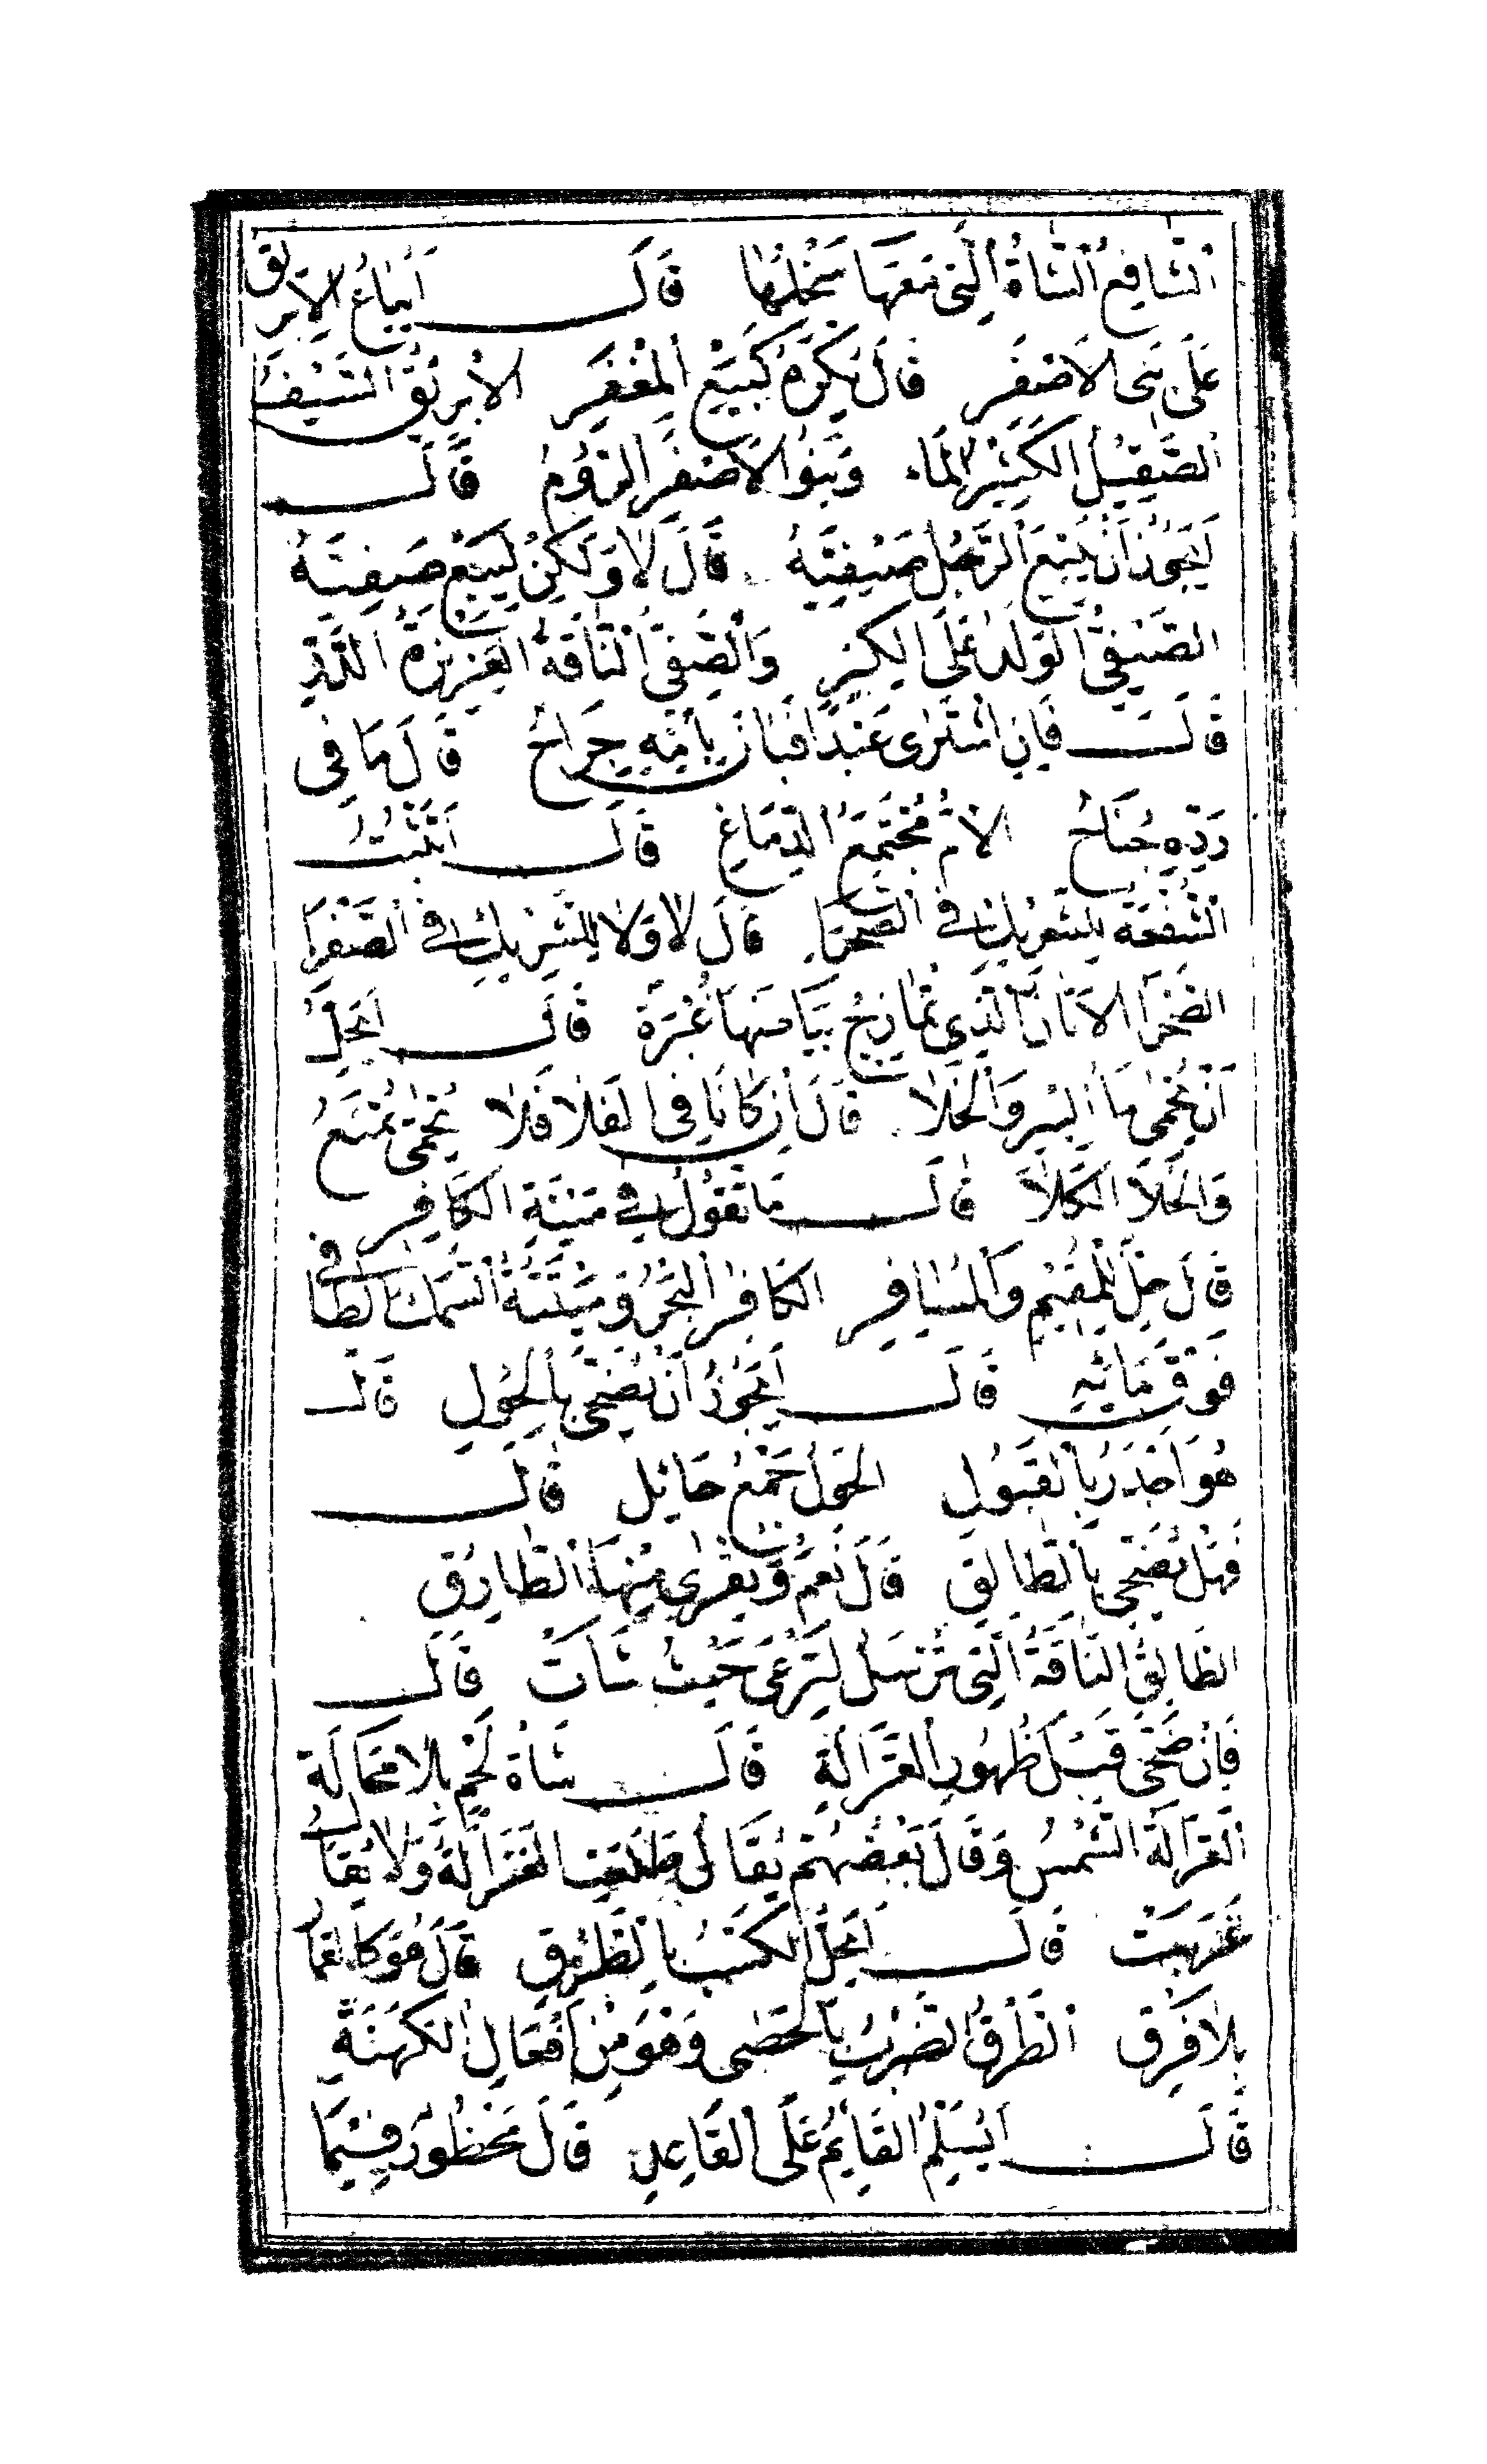 الشَّافِعُ الشَّاةُ الَّتِى مَعَهَا سَخْلَتُهَا قَالَ أَيُبَاعُ الإبريق
عَلَى بَنِى الاَصْفَر قَالَ يُكْرَهُ كَبَيْعِ الْمِغْفَر الاِبْرِيْقُ السَّيْفُ
الصَّقِيْلُ الكَثِيْرُ المَاء وَبَنُوا الاَصْفَر الرُّوْمُ قَالَ
اَيَجُوْزُ اَنْ يَبِيْعَ الرَّجُلُ صَيْفِيَّهُ قَالَ لاَ وَلَكِنْ لِيَبِعْ صَفِيَّهُ
الصَّيْفِىُّ الوَلَدُ عَلَى الكِبَرِ وَالصَّفِىُّ النَّاقَةُ الغَزِيْرَةُ الدَّرِّ
قَالَ فَاِنِ اشْتَرَى عَبْدًا فَبَانَ بِاُمِّهِ جِرَاحٌ قَالَ مَا فِى
رَدِّهِ جُنَاحٌ الاُمُّ مُجْتَمَعُ الدِّمَاغِ قَالَ اَتَثْبُتُ
الشُّفْعَةُ لِلشَّرِيْكِ فِى الصَّحْرَاءِ قَالَ لاَ وَلاَ لِلشَّرِيْكِ فِى الصَّفْرَا
الصَّحْرَا الاَتَانُ الَّذِى تُمَازِجُ بَيَاضَهَا غُبْرَة قَالَ اَيَحِلُّ
اَنْ يُحْمَى مَاءُ البِئْرِ وَالْخَلاَ قَالَ اِنْ كَانَا فِى الفَلاَ فَلاَ يُحْمَى يُمْنَعُ
وَالخَلاَ الكَلاَ قَالَ مَا تَقُوْلُ فِى مَيْتَةِ الكَافِر
قَالَ حِلٌّ لِلْمُقِيْمِ وَالْمُسَافِرِ الكَافِرُ البَحْرُ وَمَيْتَتُهُ السَّمَكُ الطَّافِى
فَوْقَ مَائِهِ قَالَ اَيَجُوْزُ اَنْ يُضَحَّى بِالحُوْلِ قَالَ
هُوَ اَجْدَرُ بِالْقَبُوْلِ الحُوْلُ جَمْعُ حَائِل قَالَ
فَهَلْ يُضَحَّى بِالطَّالِقِ قَالَ نَعَمْ وَيُقْرَى مِنْهَا الطَّارِق
الطَّالِقُ النَّاقَةُ الَّتِى تُرْسَلُ لِتَرْعَى حَيْثُ شَاءَتْ قَالَ
فَاِنْ ضَحَّى قَبْلَ ظُهُورِ الغَزَالَةِ قَالَ شَاةُ لَحْمٍ بِلاَ مَحَالَة
الغَزَالَةُ الشَّمْسُ وَقَالَ بَعْضُهُمْ يُقَالُ طَلَعَتِ الغَزَالَةُ وَلاَ يُقَالُ
غَرَبَتْ قَالَ اَيَحِلُّ الكَسْبُ بِالطَّرْقِ قَالَ هُوَ كَالقِمَارِ
بِلاَ فَرْق الطَّرْقُ الضَّرْبُ بِالحَصَى وَهُوَ مِنْ اَفْعَالِ الكَهَنَةِ
قَالَ اَيُسَلِّمُ القَائِمُ عَلَى القَاعِدِ قَالَ مَحْظُورٌ فِيْمَا